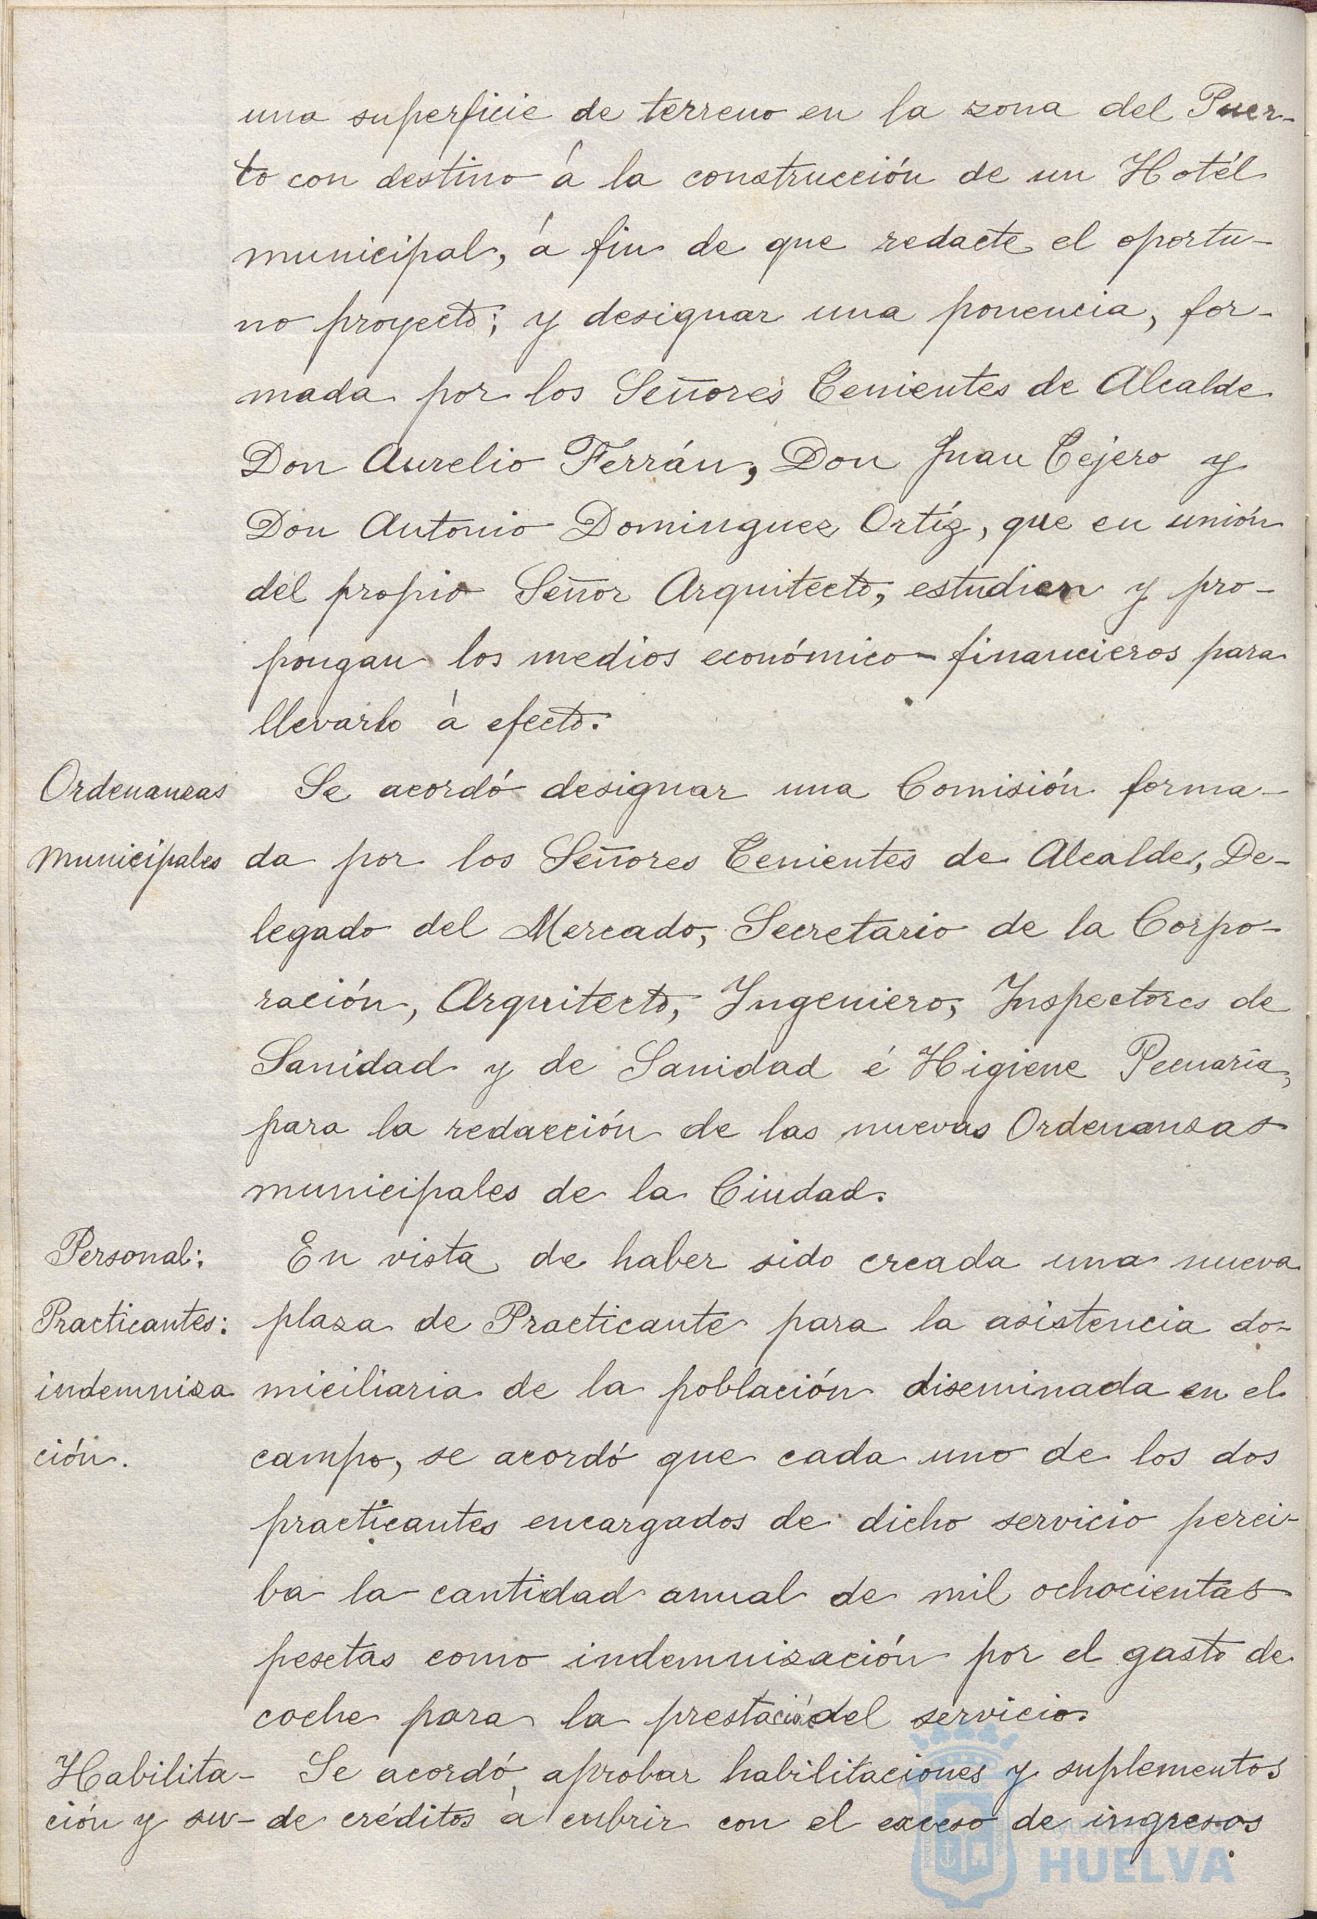 una superficie de terreno en la zona del Puer-
to con destino á la construcción de un Hotél
municipal, á fin de que redacte el oportu-
no proyecto; y designar una ponencia, for-
mada por los Señores Tenientes de Alcalde
Don Aurelio Ferrán, Don Juan Tejero y
Don Antonio Dominguez Ortíz, que en unión
del propio Señor Arquitecto, estudien y pro-
pongan los medios económico-financieros para
llevarlo á efecto.
Ordenanzas
municipales
Se acordó designar una Comisión forma-
da por los Señores Tenientes de Alcalde, De-
legado del Mercado, Secretario de la Corpo-
ración, Arquitecto, Ingeniero, Inspectores de
Sanidad y de Sanidad é Higiene Pecuaria,
para la redacción de las nuevas Ordenanzas
municipales de la Ciudad.
Personal:
Practicantes:
indemniza
ción.
En vista de haber sido creada una nueva
plaza de Practicante para la asistencia do-
miciliaria de la población diseminada en el
campo, se acordó que cada uno de los dos
practicantes encargados de dicho servicio perci-
ba la cantidad anual de mil ochocientas
pesetas como indemnización por el gasto de
coche para la prestación del servicio.
Habilita-
ción y su-
Se acordó aprobar habilitaciones y suplementos
de créditos á cubrir con el exceso de ingresos
HUELVA